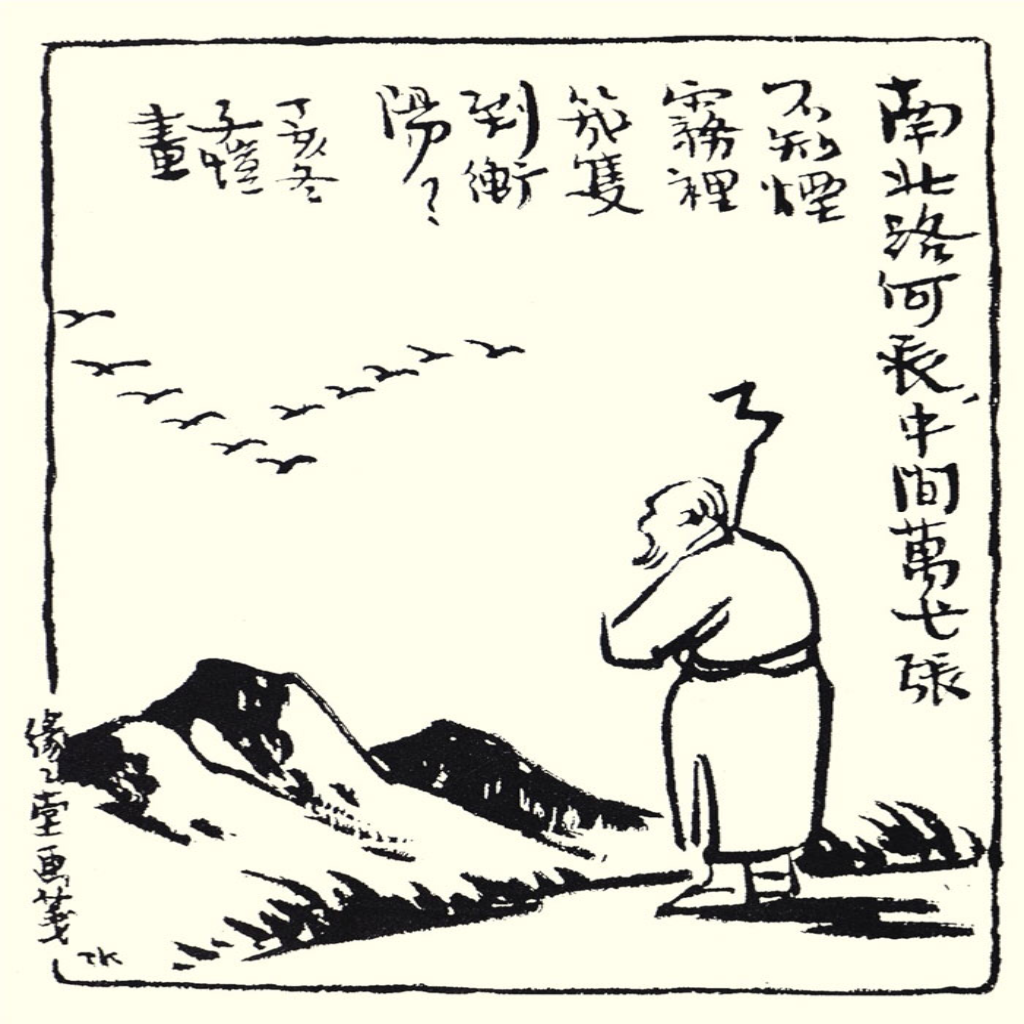 南北路何長、中間萬弋張
不知煙
霧裡
幾隻
到衡
陽？
丁亥冬
子愷
畫
緣〻堂画箋
TK